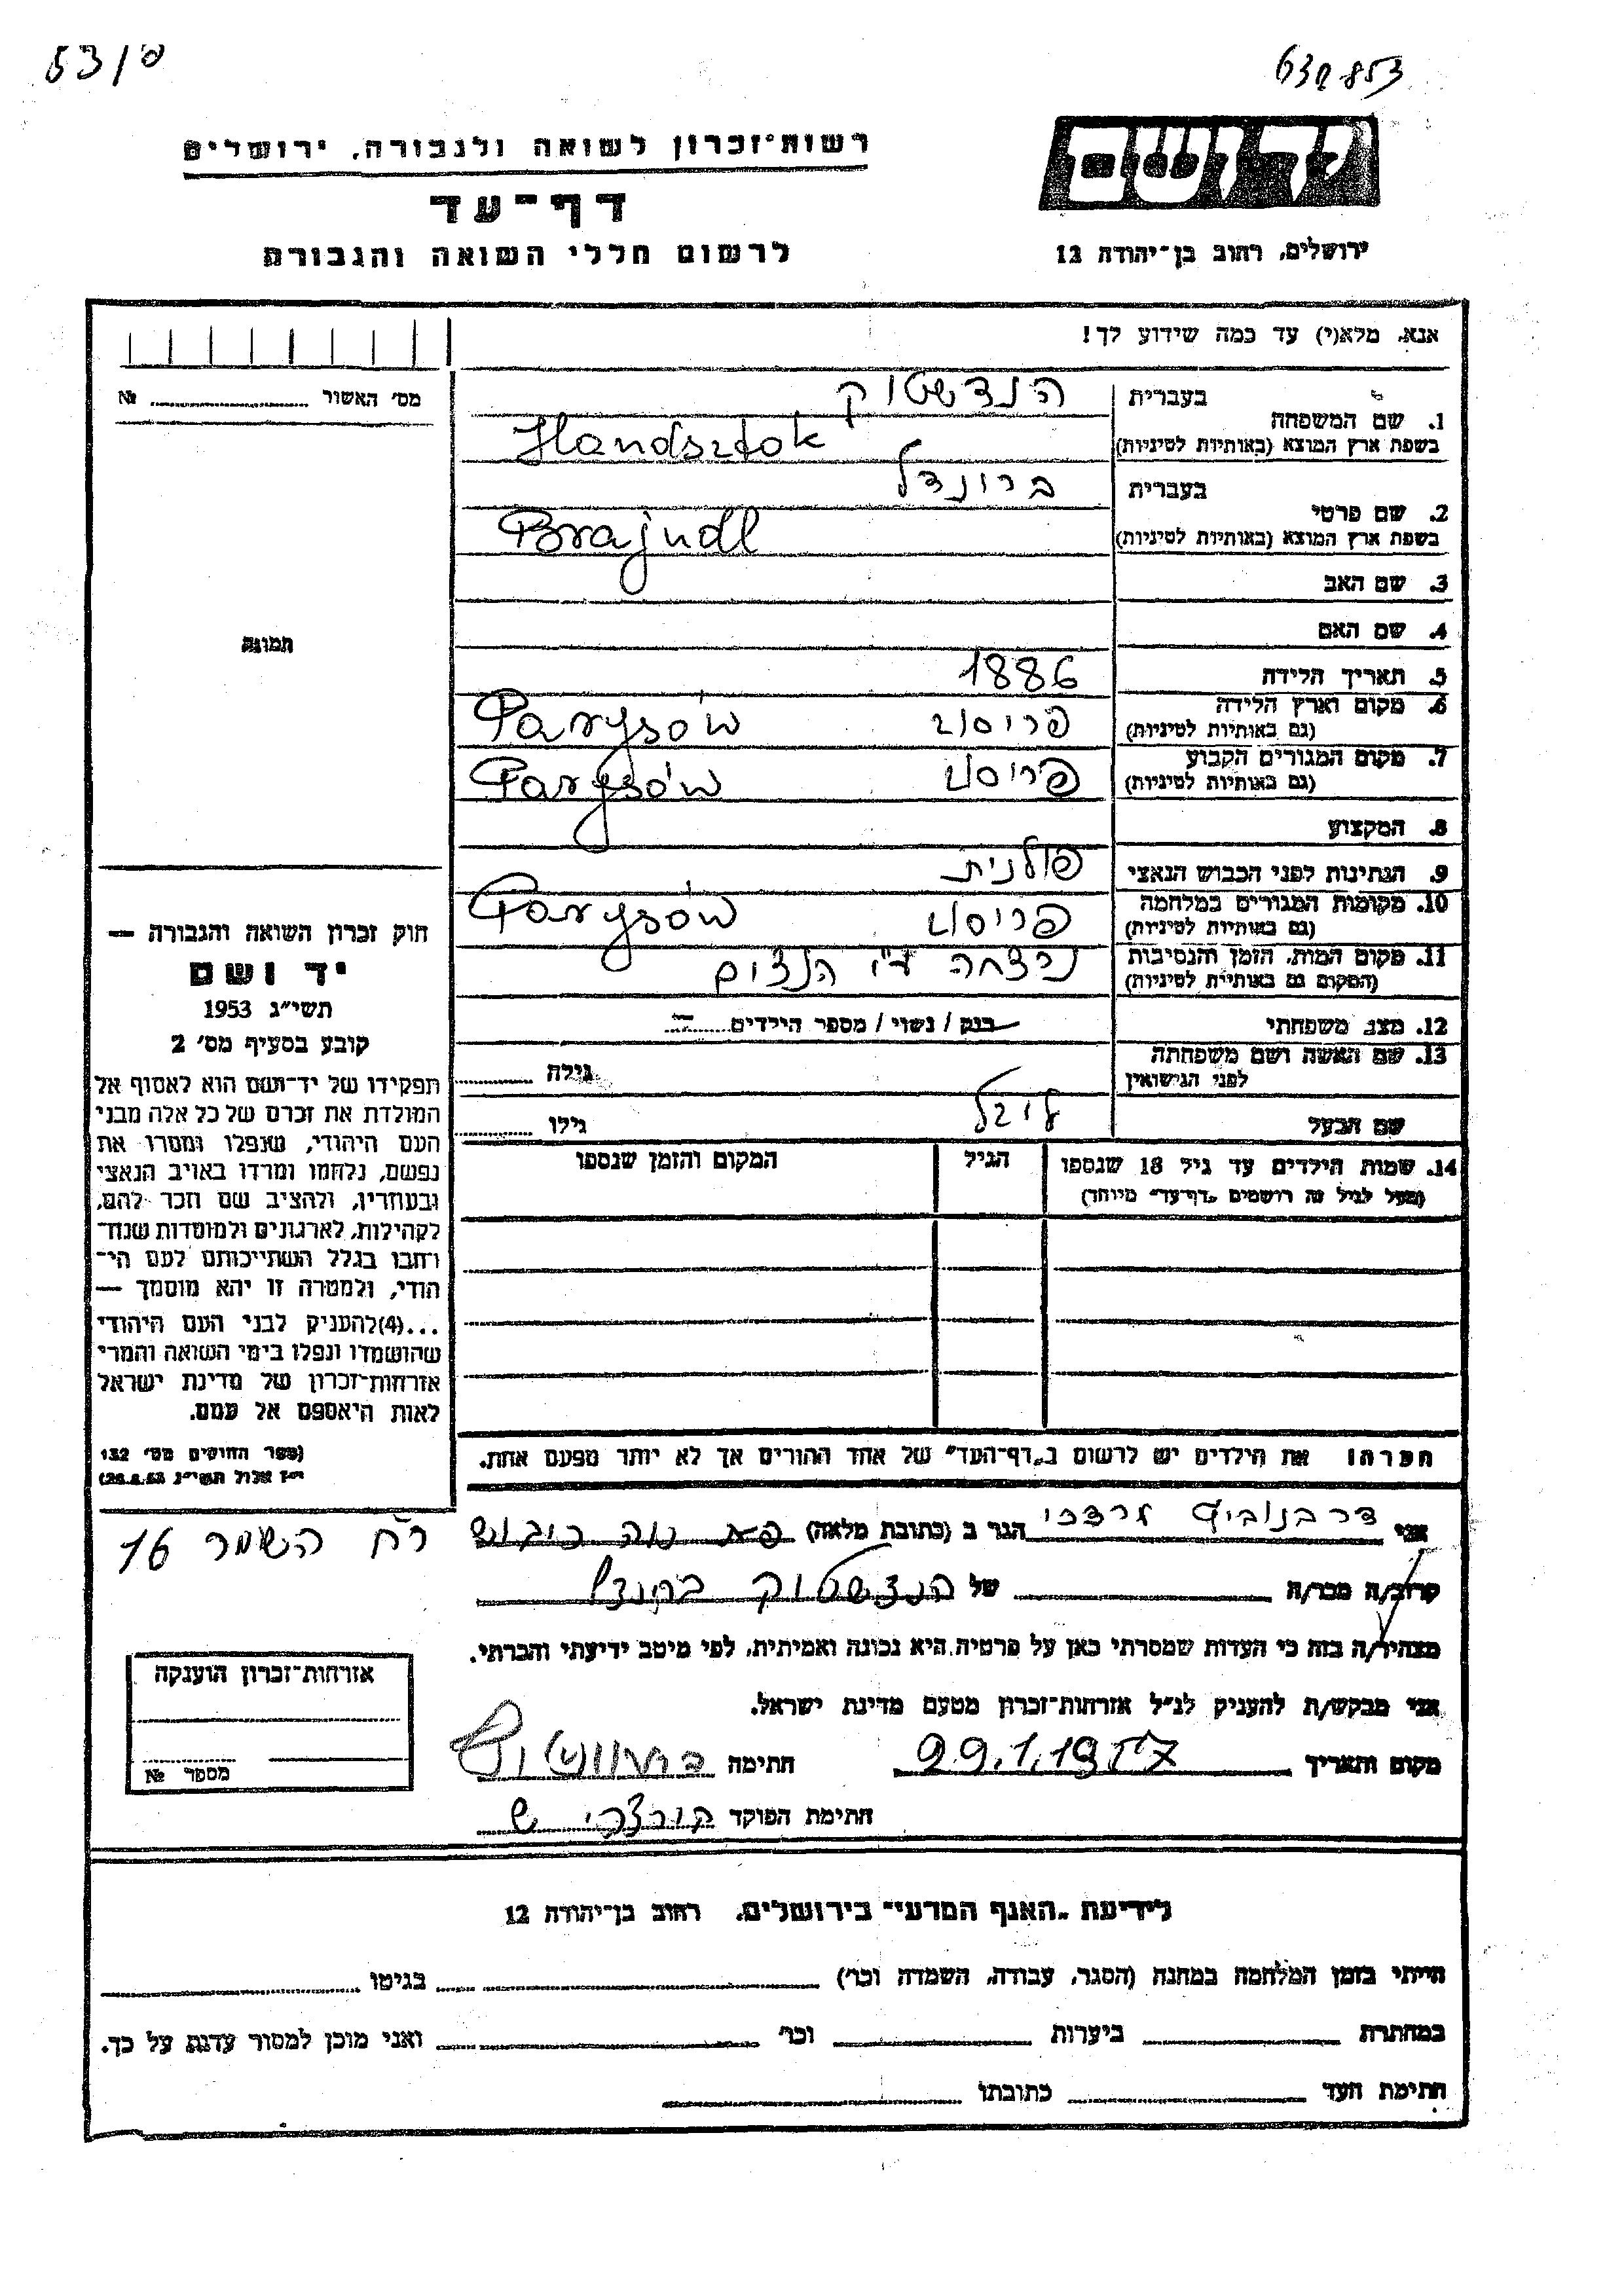 53/ס
630853
יד ושם
רשות־זכרון לשואה ולגבורה, ירושלים
דף־עד
לרשום חללי השואה והגבורה
ירושלים, רחוב בן־יהודה 12
אנא, מלא(י) עד כמה שידוע לך!
מס׳ האשור ........ №
1. שם המשפחה
בעברית הנדשטוק
בשפת ארץ המוצא (באותיות לטיניות) Handsztok
2. שם פרטי
בעברית ברונדל
בשפת ארץ המוצא (באותיות לטיניות) Brajndl
3. שם האב
4. שם האם
תמונה
5. תאריך הלידה 1886
6. מקום וארץ הלידה פריסוב Parysów
(גם באותיות לטיניות)
7. מקום המגורים הקבוע פריסוב Parysów
(גם באותיות לטיניות)
8. המקצוע
9. הנתינות לפני הכבוש הנאצי פולנית
10. מקומות המגורים במלחמה פריסוב Parysów
(גם באותיות לטיניות)
11. מקום המות, הזמן והנסיבות נרצחה ע״י הנצים
(המקום גם באותיות לטיניות)
12. מצב משפחתי רווק / נשוי / מספר הילדים
13. שם האשה ושם משפחתה
לפני הנישואין
גילה
שם הבעל לייבל גילו
14. שמות הילדים עד גיל 18 שנספו
(מעל לגיל זה רושמים „דף־עד״ מיוחד)
הגיל
המקום והזמן שנספו
חוק זכרון השואה והגבורה —
יד ושם
תשי״ג 1953
קובע בסעיף מס׳ 2
תפקידו של יד־ושם הוא לאסוף אל
המולדת את זכרם של כל אלה מבני
העם היהודי, שנפלו ומסרו את
נפשם, נלחמו ומרדו באויב הנאצי
ובעוזריו, ולהציב שם וזכר להם,
לקהילות, לארגונים ולמוסדות שנח־
רחבו בגלל השתייכותם לעם הי־
הודי, ולמטרה זו יהא מוסמך —
...(4)להעניק לבני העם היהודי
שהושמדו ונפלו בימי השואה והמרי
אזרחות־זכרון של מדינת ישראל
לאות היאספם אל עמם.
(ספר החוקים מס׳ 132
י״ז אלול תשי״ג 28.8.53)
הערה: את הילדים יש לרשום ב„דף־העד״ של אחד ההורים אך לא יותר מפעם אחת.
אני דרבנוביץ מרדכי הגר ב (כתובת מלאה) פ״ת נוה כיבוש
רח השמר 16
קרוב/ה מכר/ה של הנדשטוק ברינדל
מצהיר/ה בזה כי העדות שמסרתי כאן על פרטיה היא נכונה ואמיתית, לפי מיטב ידיעתי והכרתי.
אני מבקש/ת להעניק לנ״ל אזרחות־זכרון מטעם מדינת ישראל.
מקום ותאריך 29.1.1957 חתימה
חתימת הפוקד
אזרחות־זכרון הוענקה
מספר №
לידיעת „האגף המדעי״ בירושלים, רחוב בן־יהודה 12
הייתי בזמן המלחמה במחנה (הסגר, עבודה, השמדה וכר׳) בגיטו
במחתרת ביערות וכר׳ ואני מוכן למסור עדות על כך.
חתימת העד כתובתו